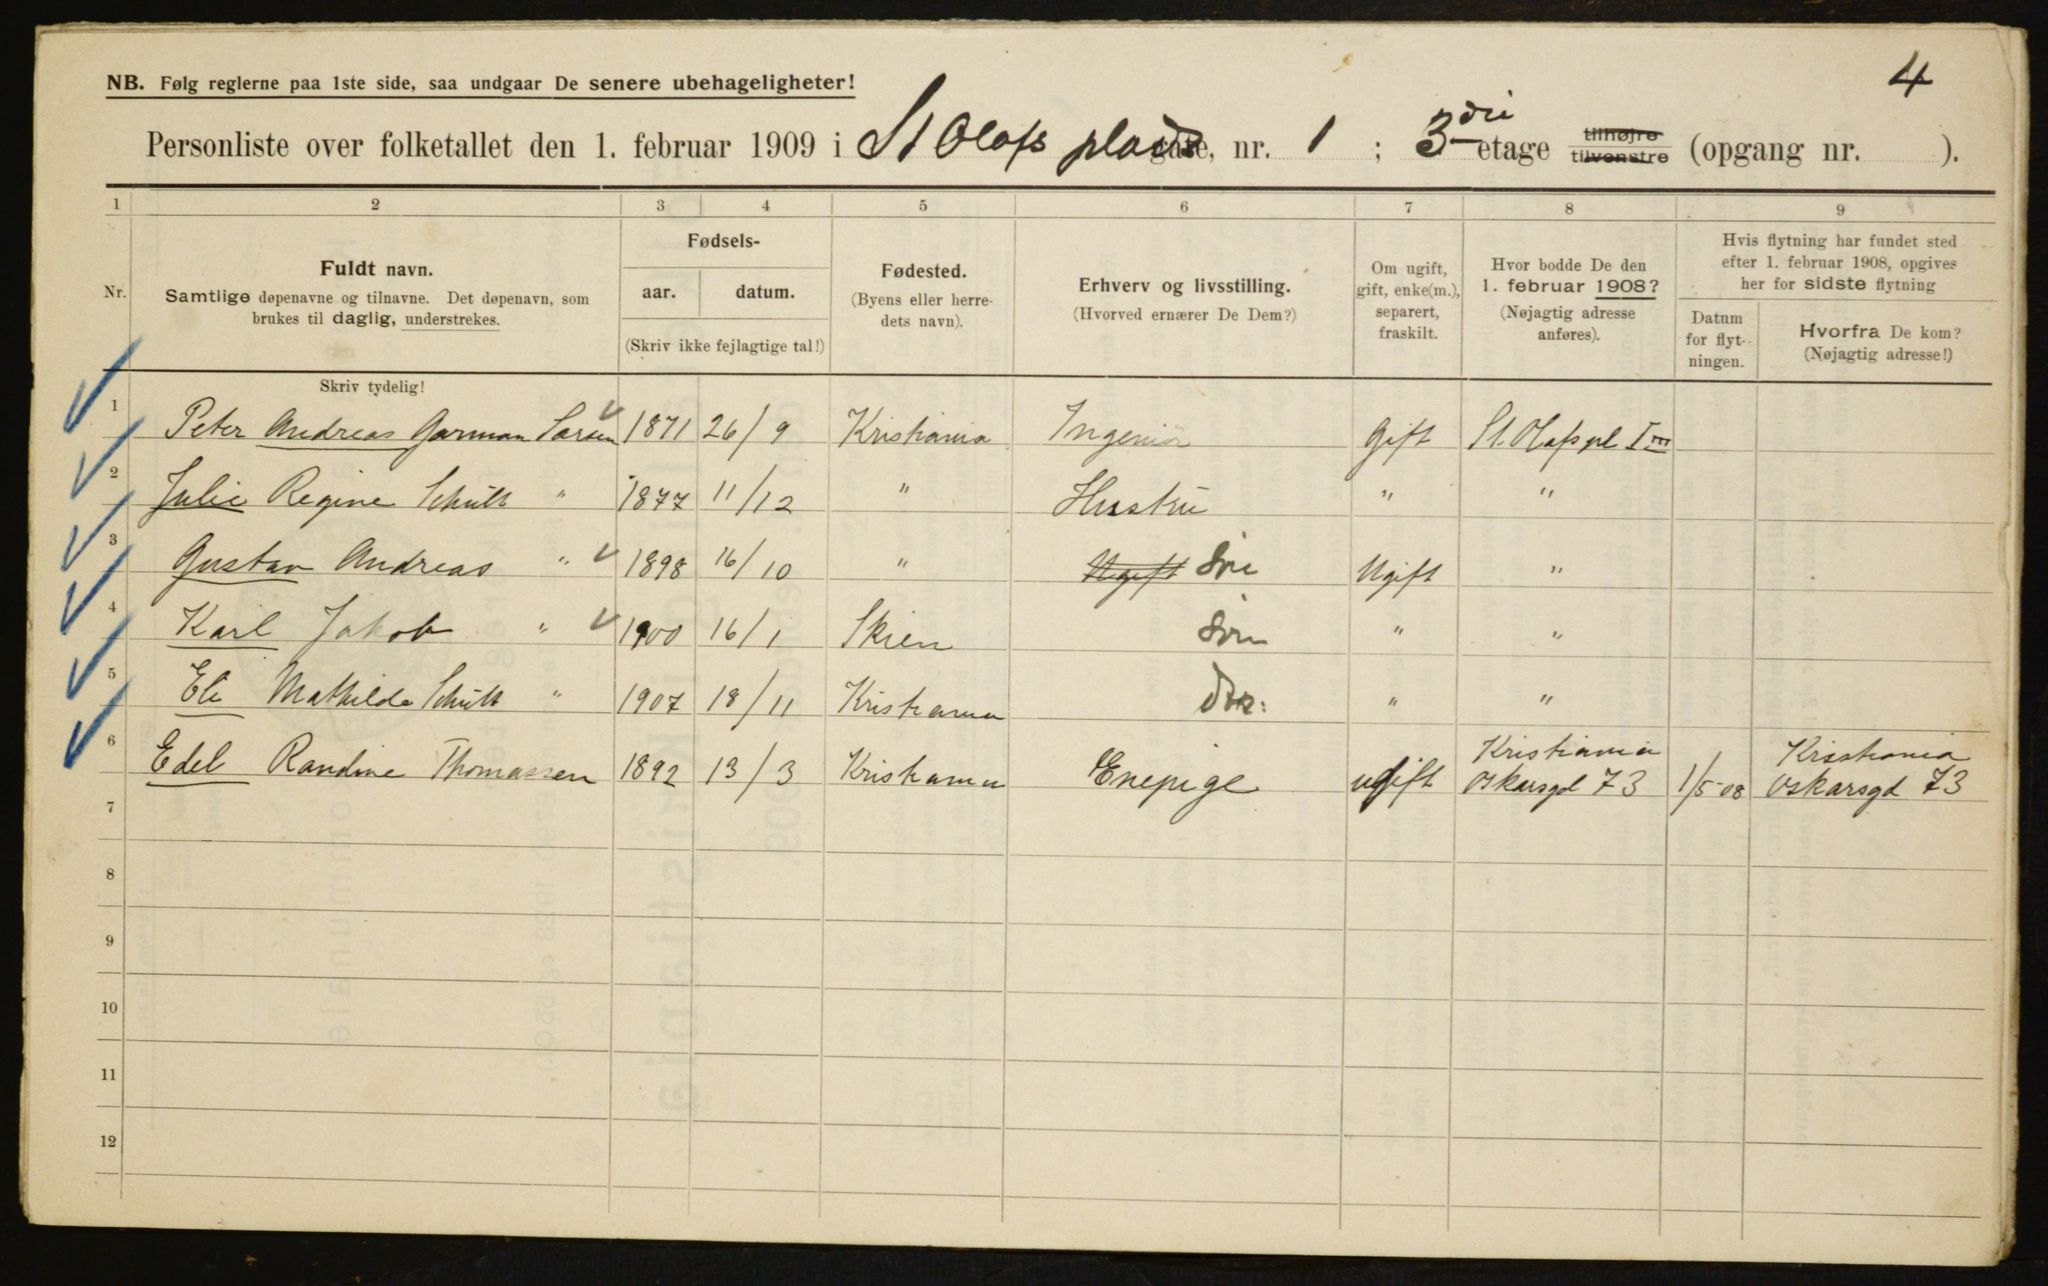 4
NB. Følg reglerne paa 1ste side, saa undgaar De senere ubehageligheter!
Personliste over folketallet den 1. februar 1909 i St Olafs plads gate, nr. 1 ; 3die etage tilhøjre tilvenstre (opgang nr. ).
1 2 3 4 5 6 7 8 9
Nr. Fuldt navn. Samtlige døpenavne og tilnavne. Det døpenavn, som brukes til daglig, understrekes. Skriv tydelig!
Fødsels- aar. datum. (Skriv ikke fejlagtige tal!)
Fødested. (Byens eller herredets navn).
Erhverv og livsstilling. (Hvorved ernærer De Dem?)
Om ugift, gift, enke(m.), separert, fraskilt.
Hvor bodde De den 1. februar 1908? (Nøjagtig adresse anføres).
Hvis flytning har fundet sted efter 1. februar 1908, opgives her for sidste flytning
Datum for flytningen. Hvorfra De kom? (Nøjagtig adresse!)
1 Peter Andreas Garman Larsen 1871 26/9 Kristiania Ingeniør Gift St. Olafs pl I
2 Julie Regine Schült " 1877 11/12 " Hustru " "
3 Gustav Andreas " 1898 16/10 " Ugift Søn Ugift "
4 Karl Jakob " 1900 16/1 Skien Søn " "
5 Eli Mathilde Schült " 1907 18/11 Kristiania dtr: " "
6 Edel Randine Thomassen 1892 13/3 Kristiania Enepige ugift Kristiania Oskarsgd 73 1/5-08 Kristiania Oskarsgd 73
7
8
9
10
11
12